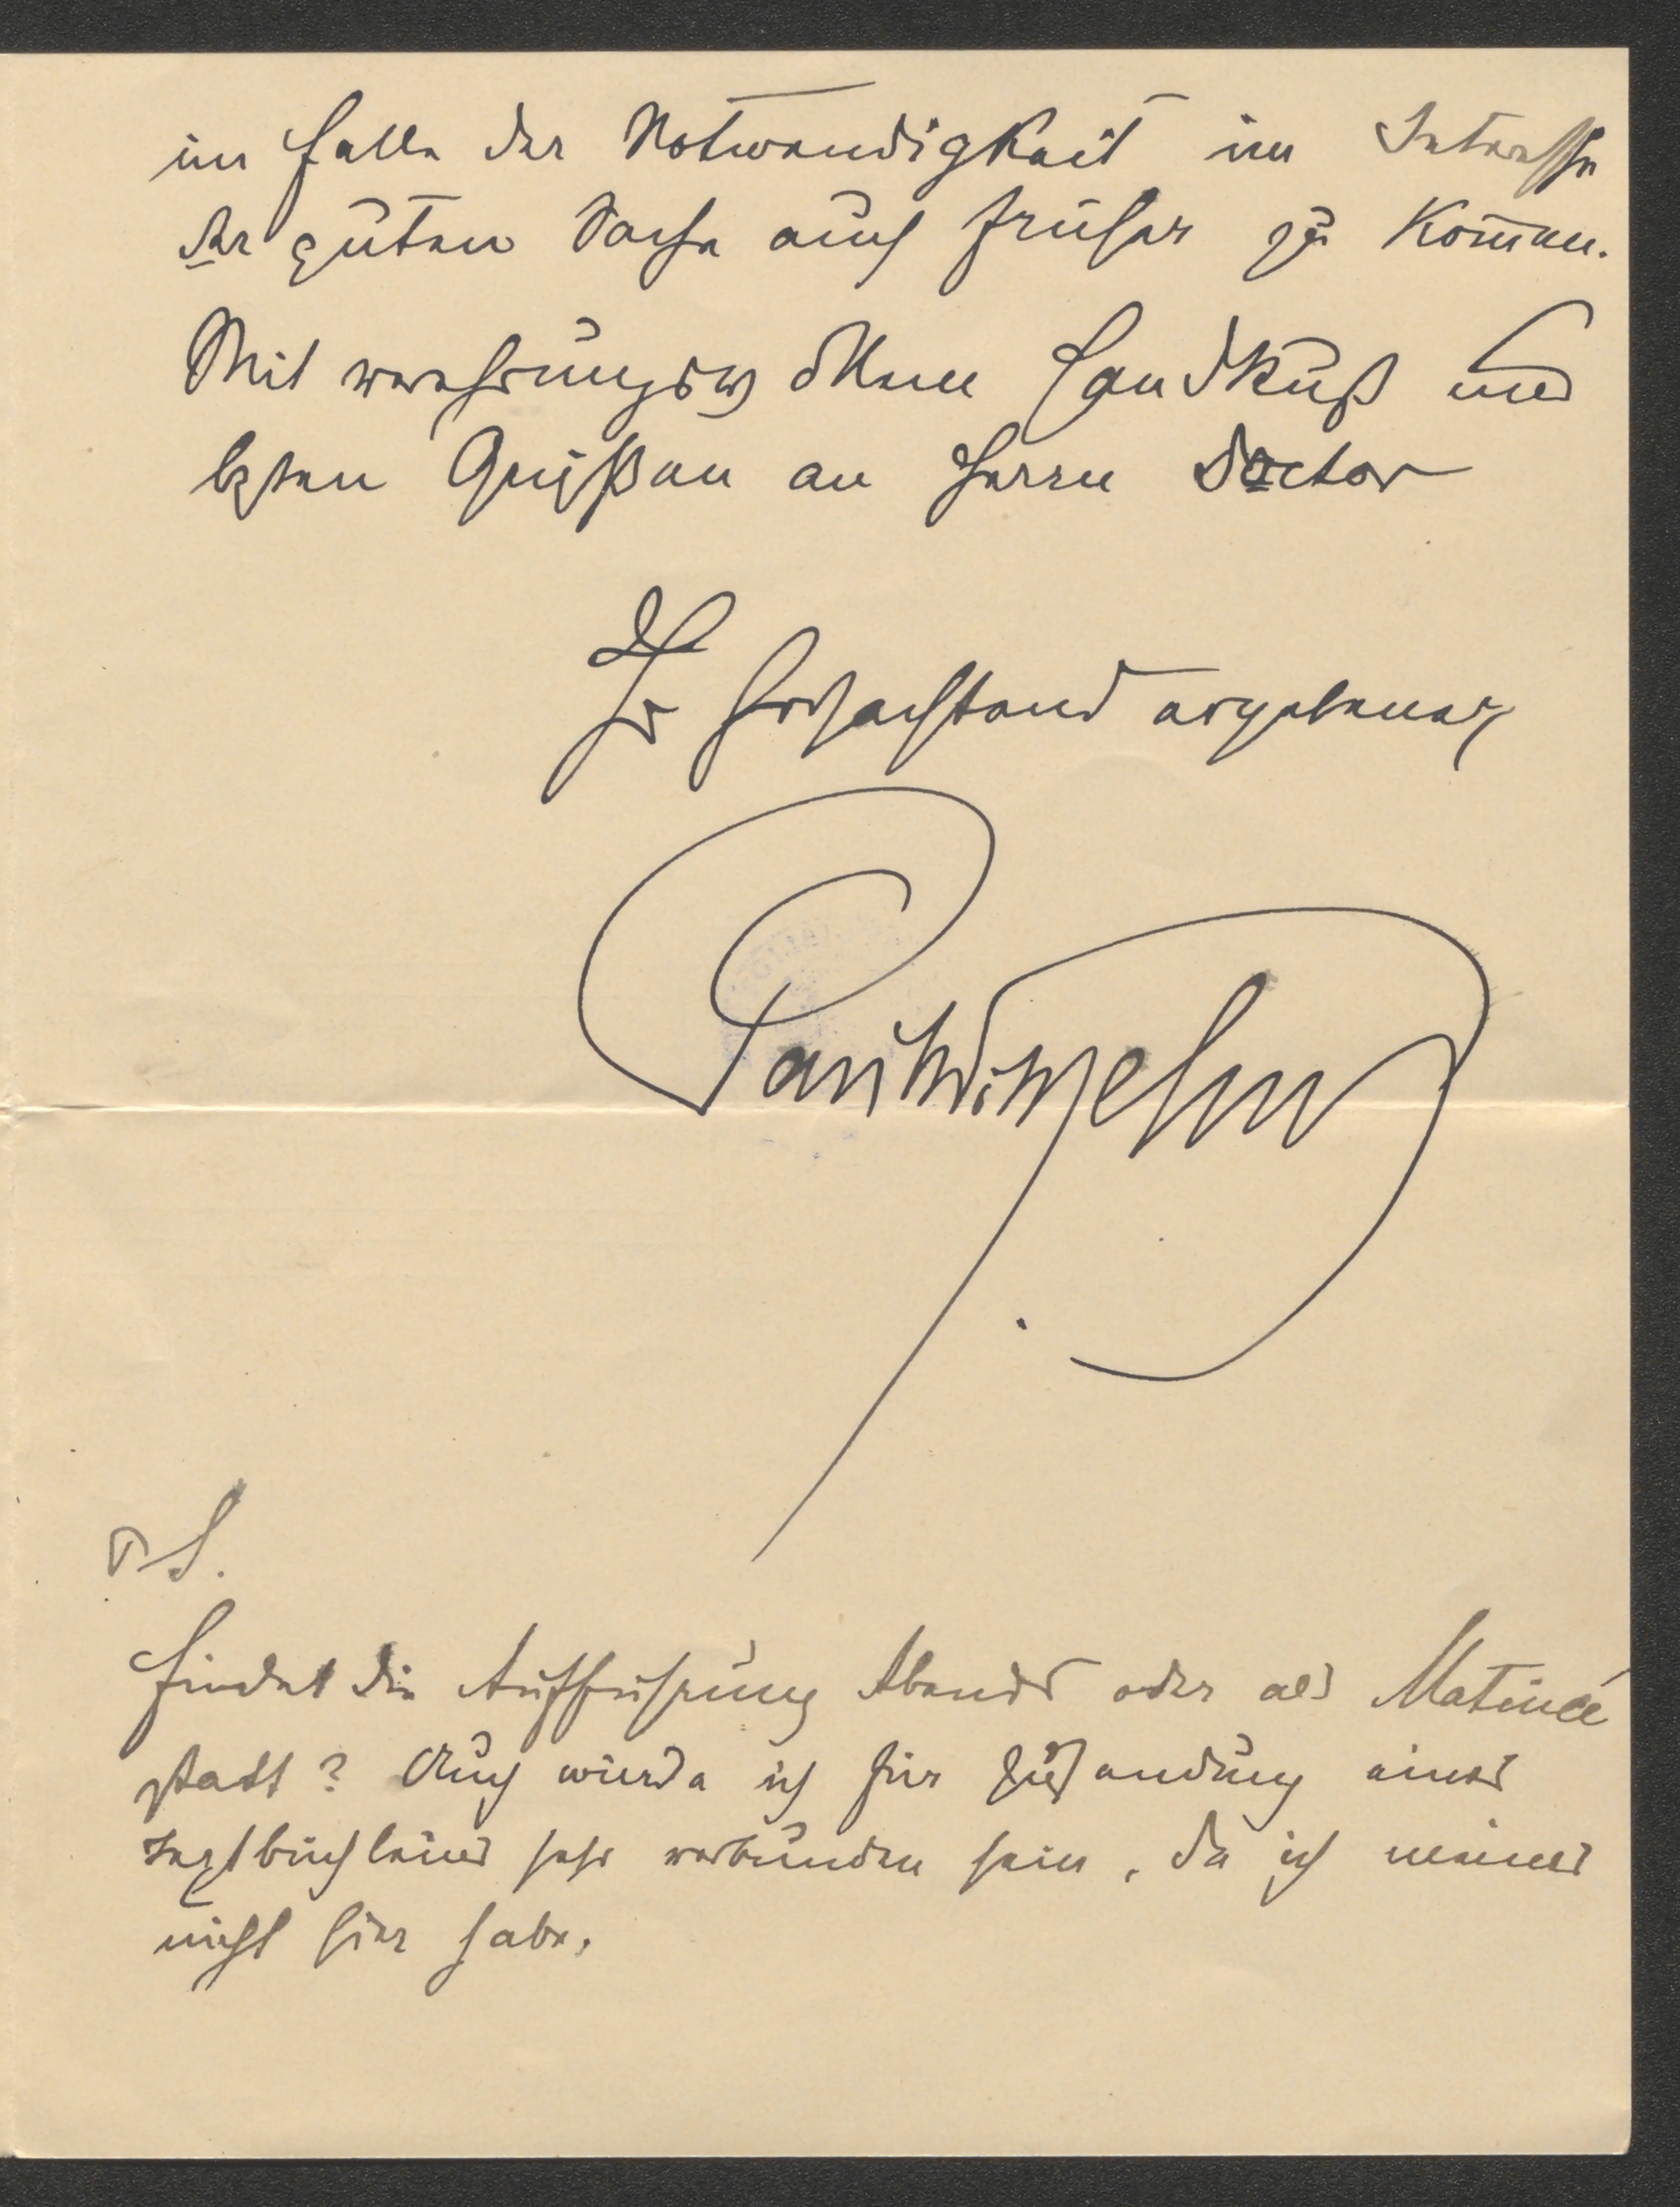 im Falle der Notwendigkeit im Interesse
der guten Sache auch früher zu kom̅en.
Mit verehrungsvollem Handkuß und
besten Grüßen an Herrn Doctor
Ihr hochachtend ergebener
Paul Wilhelm
P.S.
Findet die Aufführung Abends oder als Matinée
statt? Auch würde ich für Zusendung eines
Textbüchleins sehr verbunden sein, da ich meines
nicht hier habe.